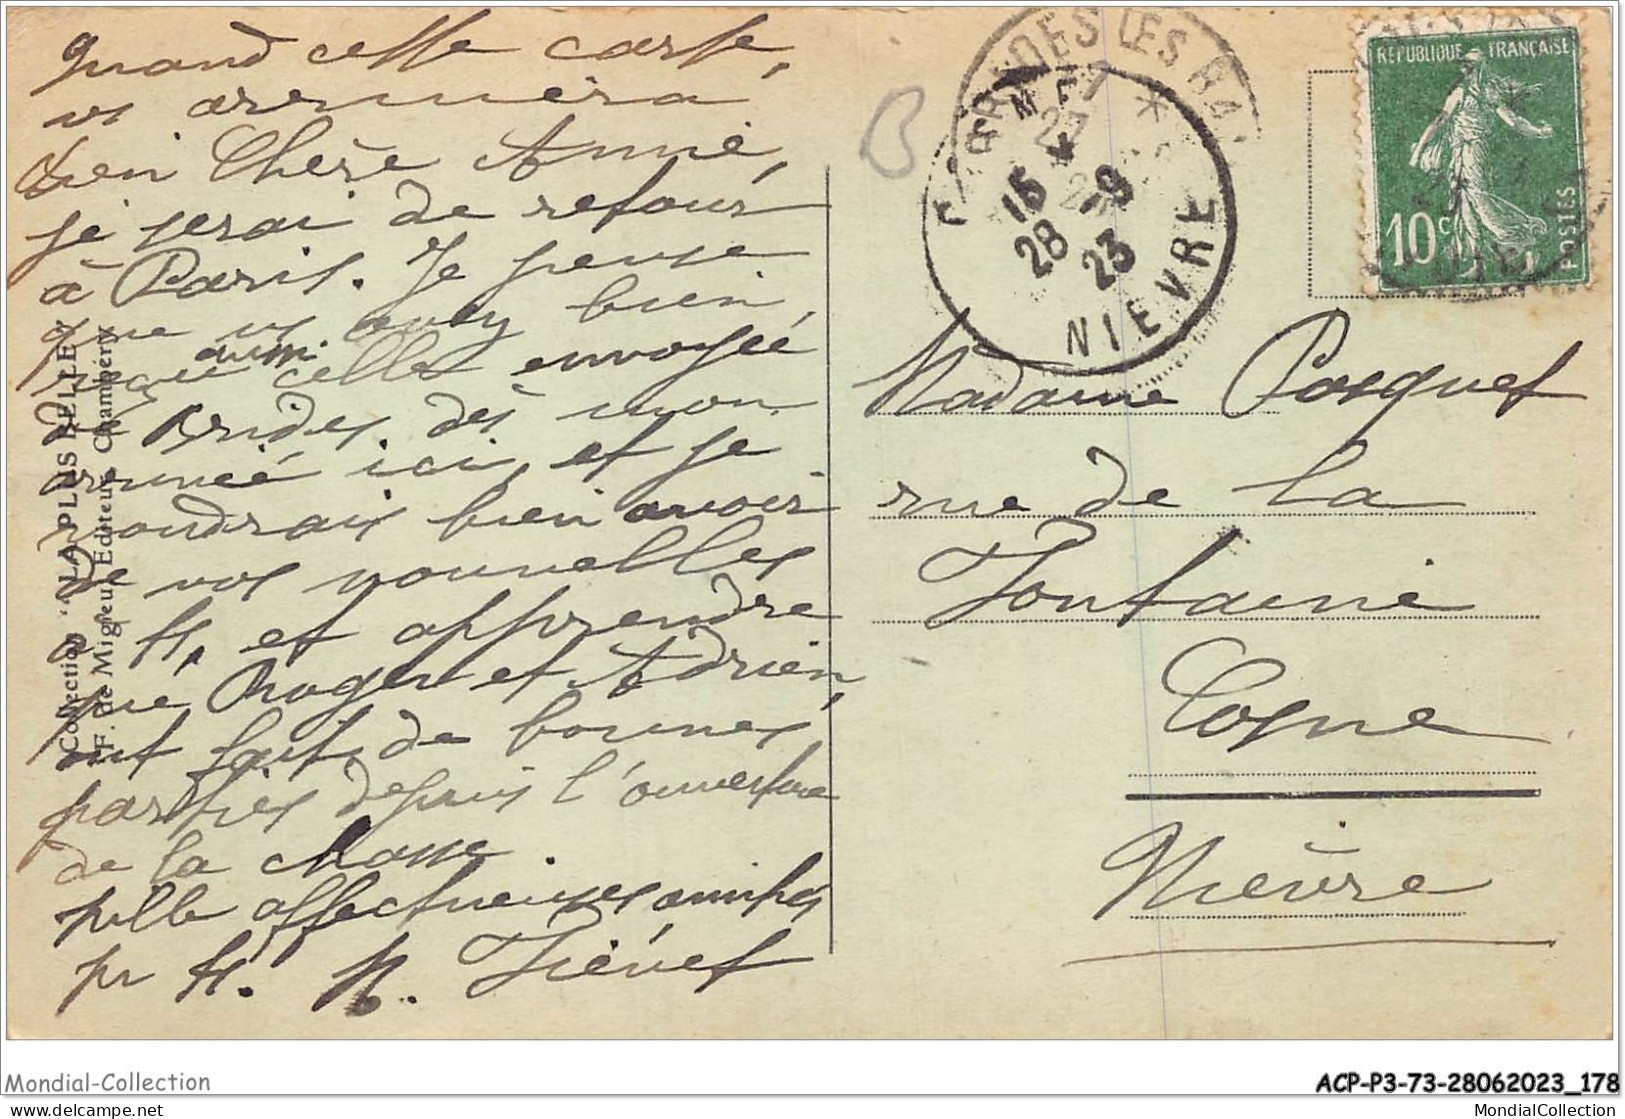 Quand cette carte,
vs arrivera
bien Chère Amie,
je serai de retour
à Paris. Je pense
que vs avez bien
reçu aussi celle envoyée
de Brides, dès mon
arrivée ici, et je
voudrais bien avoir
de vos nouvelles
à ts, et apprendre
que Roger et Adrien,
ont fait de bonnes
parties depuis l'ouverture
de la chasse
mille affectueuses amitiés
pr ts. M. Fiévet
Collection "LA PLUS BELLE"
F. de Migieu, Editeur, Chambéry
LES BA
15 * 9
28 23
NIEVRE
B
REPUBLIQUE FRANÇAISE
10c
POSTES
Madame Pasquet
rue de la
Fontaine
Cosne
Nièvre
Mondial-Collection
ACP-P3-73-28062023_178
www.delcampe.net
MondialCollection